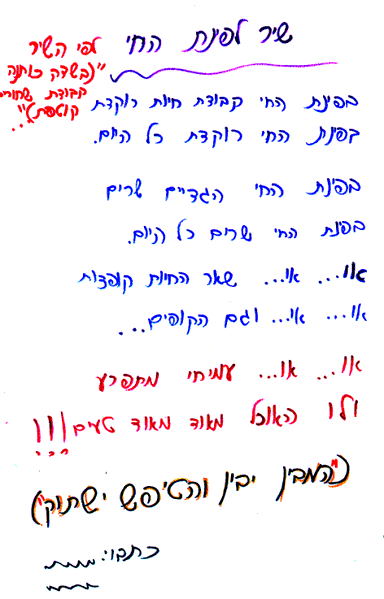 שיר לפינת החי
לפי השיר
"(בשדה כותנה
קבוצת שחורים
קוטפת)"...
בפינת החי קבוצת חיות רוקדת
בפינת החי רוקדת כל היום.
בפינת החי הגדיים שרים
בפינת החי שרים כל היום.
או... או... שאר החיות קופצות
או... או... וגם הקופים...
או... או... עמיחי מתפרע
ולו האוכל מאוד מאוד טעים!!!
("המבין יבין והטיפש ישתוק")
כתבו: